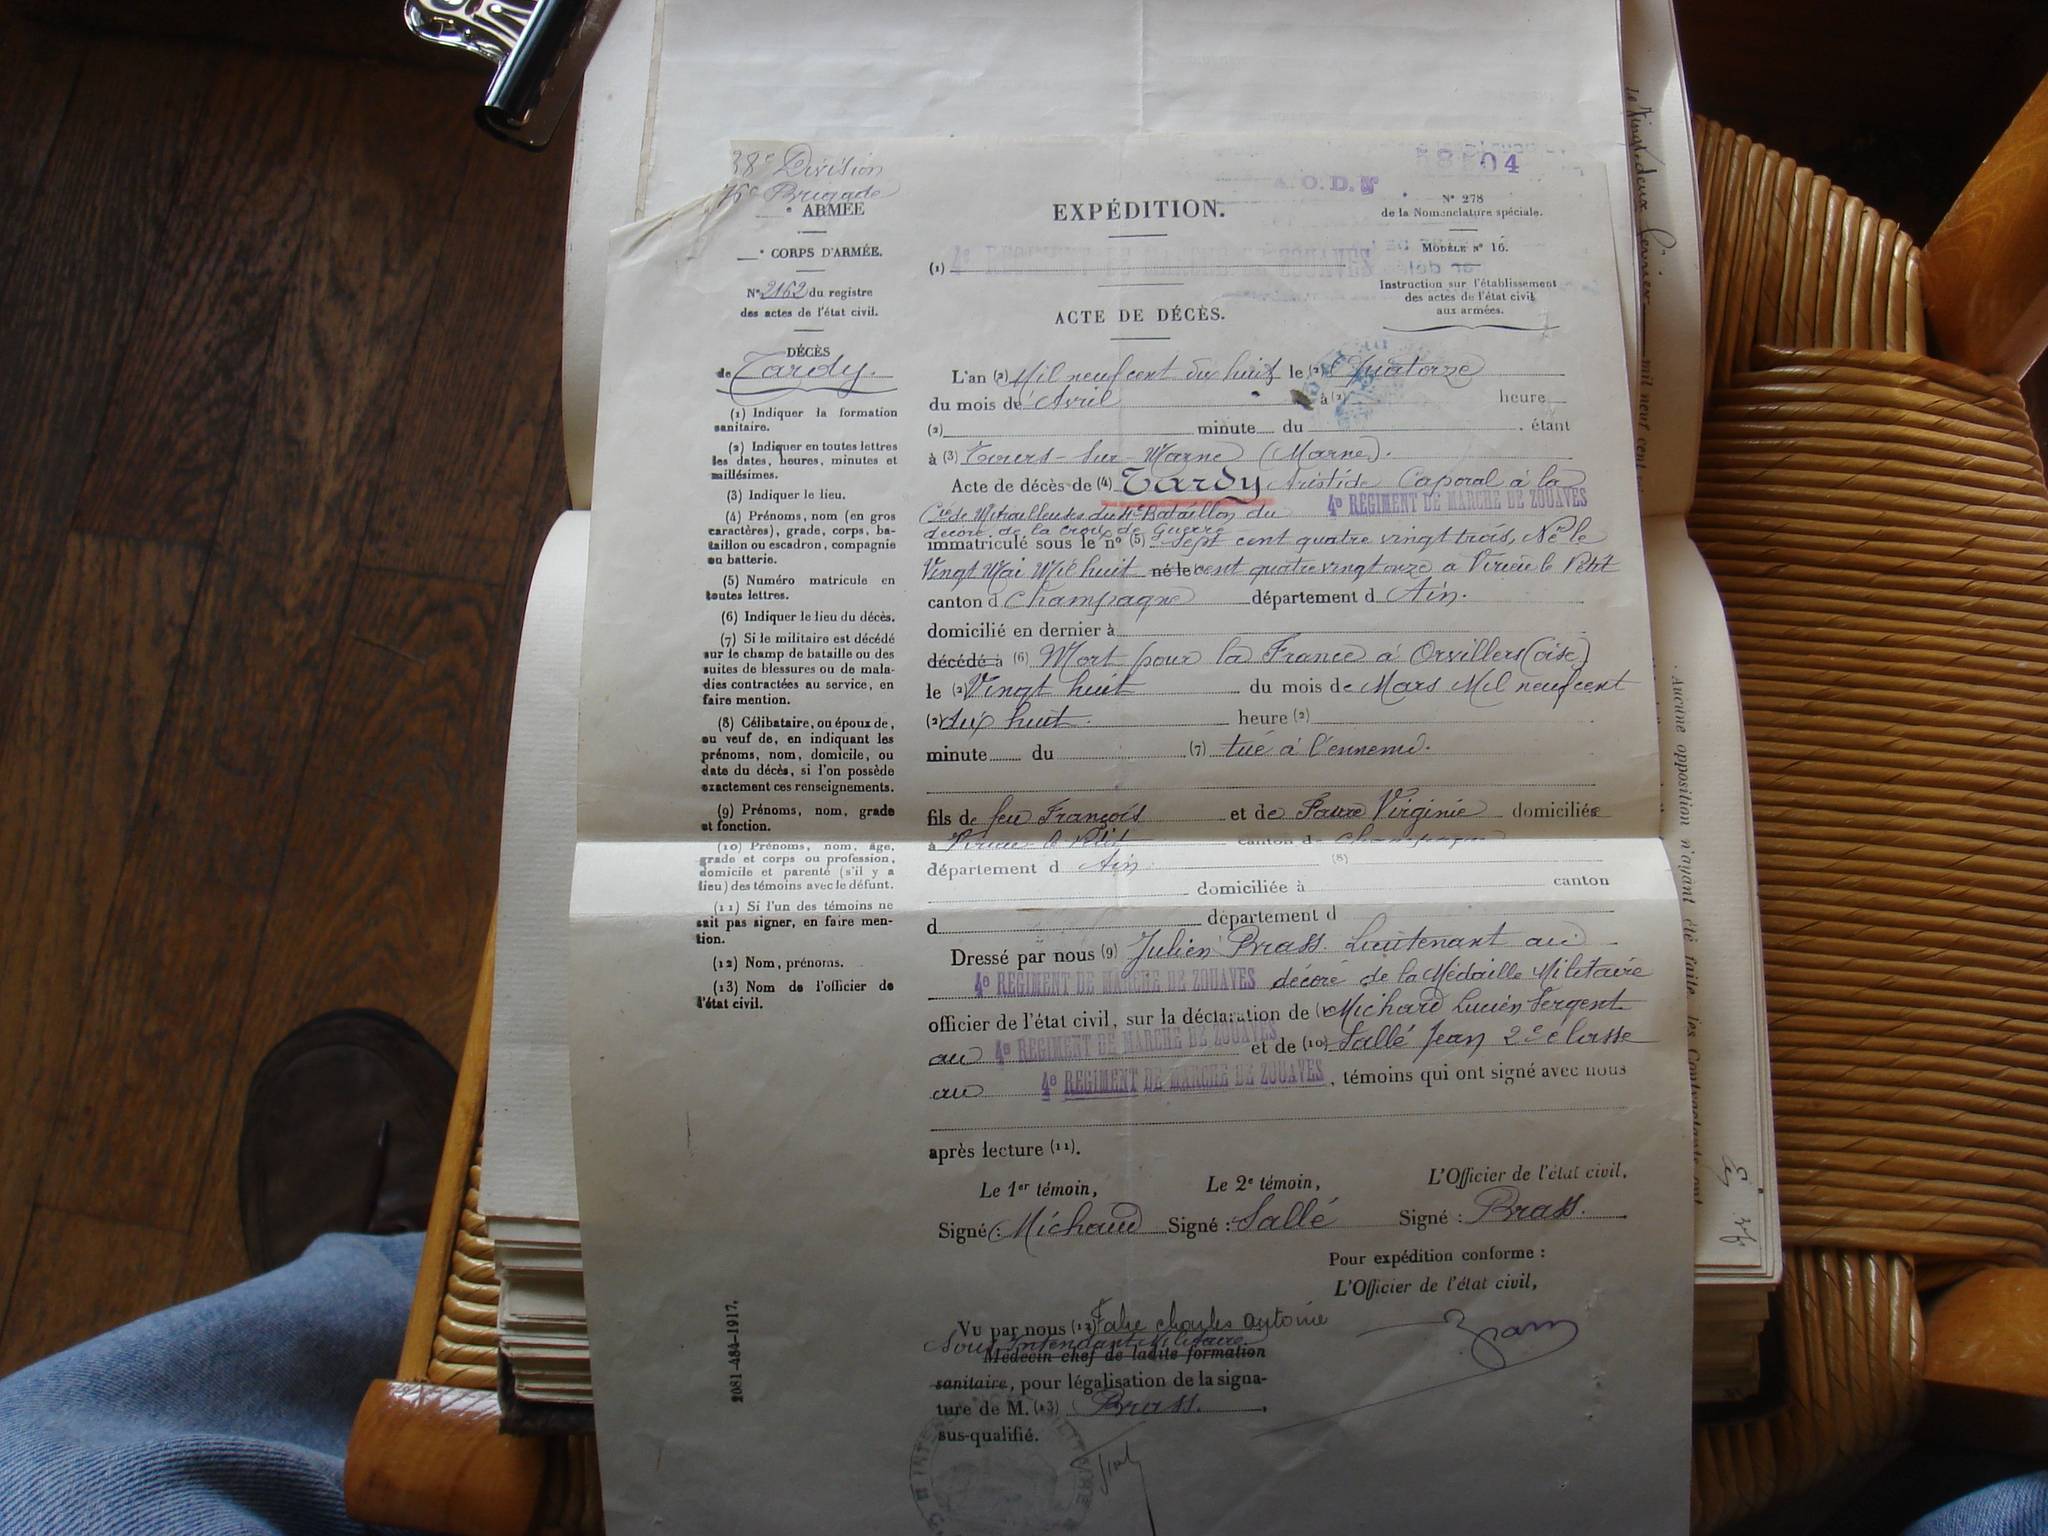 38e Division
76e Brigade
e ARMÉE
e CORPS D'ARMÉE.
N° 2162 du registre
des actes de l'état civil.
DÉCÈS
de Tardy.
(1) Indiquer la formation
sanitaire.
(2) Indiquer en toutes lettres
les dates, heures, minutes et
millésimes.
(3) Indiquer le lieu.
(4) Prénoms, nom (en gros
caractères), grade, corps, ba-
taillon ou escadron, compagnie
ou batterie.
(5) Numéro matricule en
toutes lettres.
(6) Indiquer le lieu du décès.
(7) Si le militaire est décédé
sur le champ de bataille ou des
suites de blessures ou de mala-
dies contractées au service, en
faire mention.
(8) Célibataire, ou époux de,
ou veuf de, en indiquant les
prénoms, nom, domicile, ou
date du décès, si l'on possède
exactement ces renseignements.
(9) Prénoms, nom, grade
et fonction.
(10) Prénoms, nom, âge,
grade et corps ou profession,
domicile et parenté (s'il y a
lieu) des témoins avec le défunt.
(11) Si l'un des témoins ne
sait pas signer, en faire men-
tion.
(12) Nom, prénoms.
(13) Nom de l'officier de
l'état civil.
2081-484-1917.
04
A.O.D. N°
N° 278
de la Nomenclature spéciale.
MODÈLE N° 16.
Instruction sur l'établissement
des actes de l'état civil
aux armées.
EXPÉDITION.
(1) 4e RÉGIMENT DE MARCHE DE ZOUAVES
ACTE DE DÉCÈS.
L'an (2) Mil neuf cent dix huit le (2) Quatorze
du mois de Avril à (2) heure
(2) minute du étant
à (3) Tours-sur-Marne (Marne).
Acte de décès de (4) Tardy Aristide Caporal à la
Cie de Mitrailleuses du 4e Bataillon du 4e RÉGIMENT DE MARCHE DE ZOUAVES
décoré de la croix de Guerre
immatriculé sous le n° (5) Sept cent quatre vingt trois, Né le
Vingt Mai Mil huit né le cent quatre vingt onze à Virieu le Petit
canton d Champagne département d Ain.
domicilié en dernier à
décédé à (6) Mort pour la France à Orvillers (Oise)
le (2) Vingt huit du mois de Mars Mil neuf cent
(2) dix huit. heure (2)
minute du (7) tué à l'ennemi.
fils de feu François et de Favre Virginie domiciliés
à Virieu-le Petit canton de Champagne
département d Ain. (8)
domiciliée à canton
d département d
Dressé par nous (9) Julien Brass. Lieutenant au
4e RÉGIMENT DE MARCHE DE ZOUAVES décoré de la Médaille Militaire
officier de l'état civil, sur la déclaration de (10) Michaud Lucien Sergent
au 4e RÉGIMENT DE MARCHE DE ZOUAVES et de (10) Sallé Jean 2e classe
au 4e RÉGIMENT DE MARCHE DE ZOUAVES, témoins qui ont signé avec nous
après lecture (11).
Le 1er témoin, Le 2e témoin, L'Officier de l'état civil,
Signé : Michaud Signé : Sallé Signé : Brass.
Pour expédition conforme :
L'Officier de l'état civil,
Vu par nous (12) charles antoine
Sous Intendant Militaire
Médecin chef de ladite formation
sanitaire, pour légalisation de la signa-
ture de M. (13) Brass.
sus-qualifié.
Le Vingt-deux mil neuf cent
Aucune opposition n'ayant été faite, les